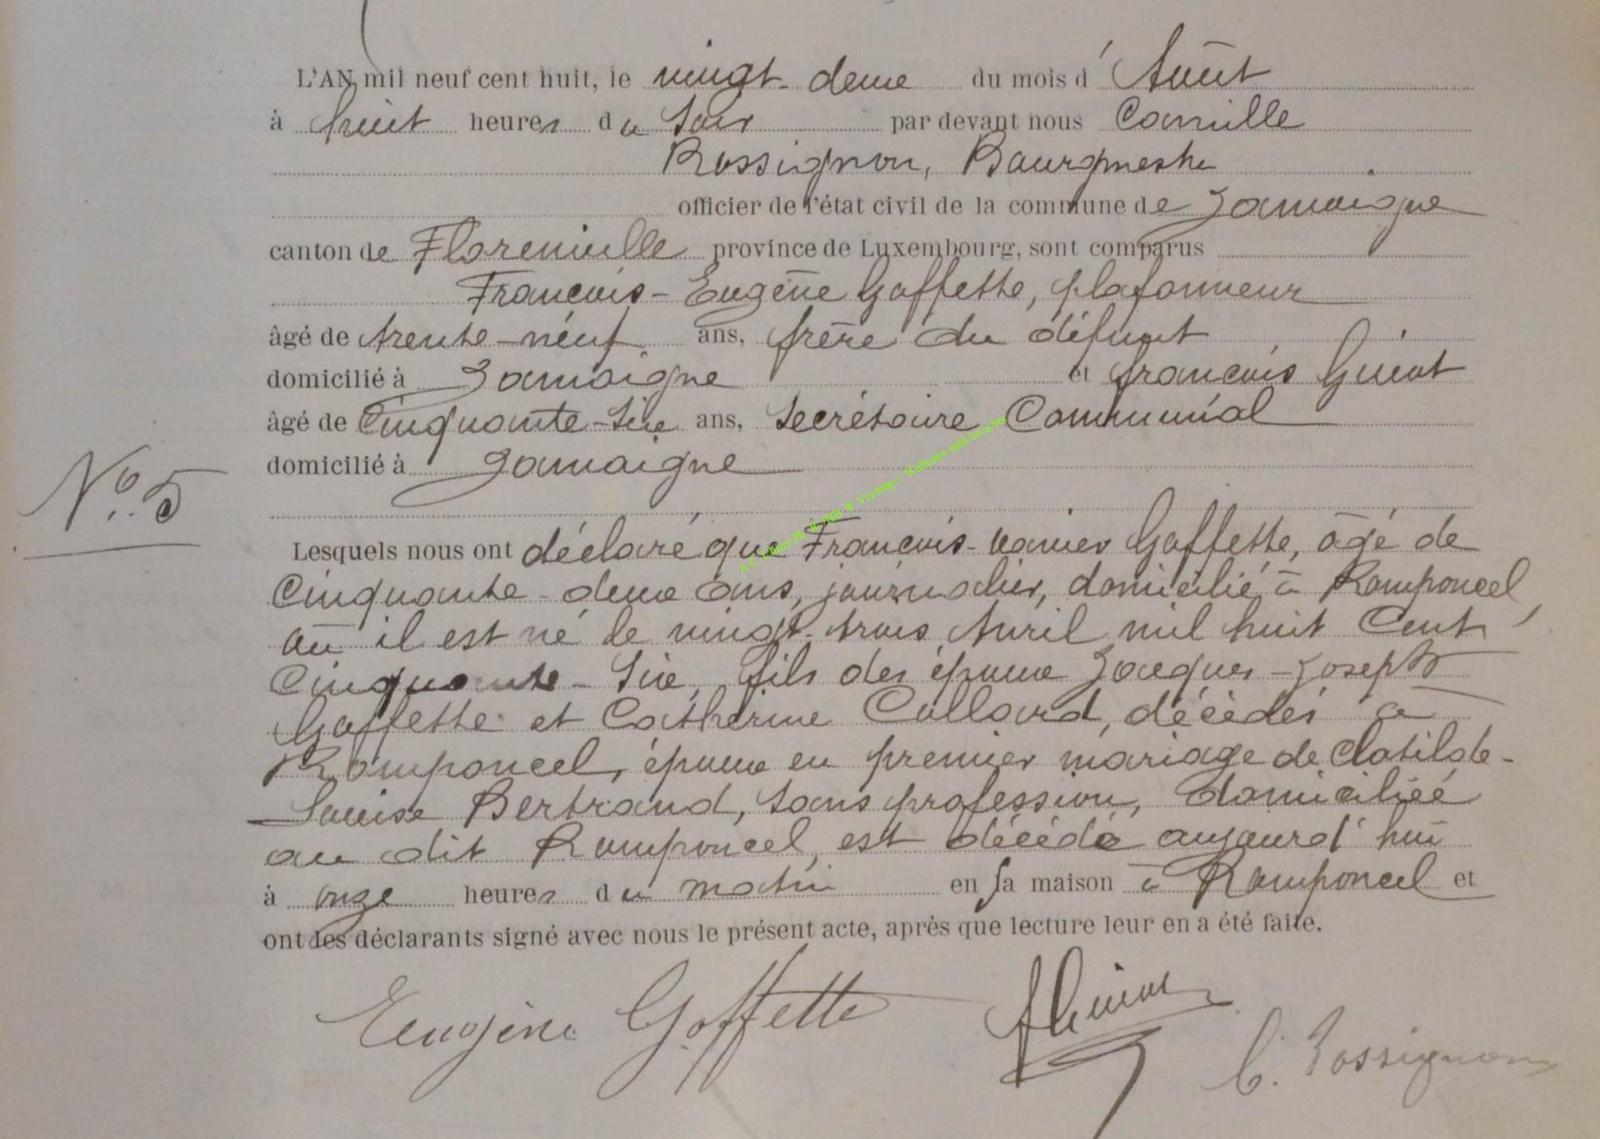 L'AN mil neuf cent huit, le vingt-deux du mois d'Août
à huit heures du soir par devant nous Camille
Rossignon, Bourgmestre
officier de l'état civil de la commune de Jamoigne
canton de Florenville province de Luxembourg, sont comparus
François-Eugène Goffette, plafonneur
âgé de trente-neuf ans, frère du défunt
domicilié à Jamoigne et François Guiot
âgé de Cinquante-six ans, Secrétaire Communal
domicilié à Jamoigne
N° 5
Lesquels nous ont déclaré que François-Xavier Goffette, âgé de
Cinquante-deux ans, journalier, domicilié à Romponcel,
où il est né le vingt-trois Avril mil huit Cent
Cinquante-Six, fils des époux Jacques-Joseph
Goffette et Catherine Collard, décédés à
Romponcel, époux en premier mariage de Clotilde-
Louise Bertrand, sans profession, domiciliée
au dit Romponcel, est décédé aujourd'hui
à onze heures du matin en sa maison à Romponcel et
ont les déclarants signé avec nous le présent acte, après que lecture leur en a été faite.
Eugène Goffette
F Guiot
C. Rossignon